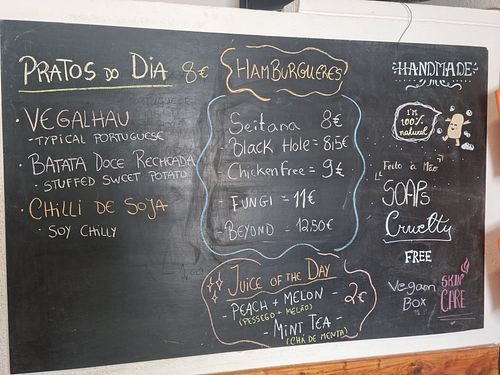 PRATOS DO DIA 8€
• VEGALHAU
- TYPICAL PORTUGUESE
• BATATA DOCE RECHEADA
- STUFFED SWEET POTATO
• CHILLI DE SOJA
- SOY CHILLY
HAMBURGUERES
Seitana 8€
- Black Hole = 8,5€
- Chicken Free = 9€
- FUNGI = 11€
- BEYOND = 12,50€
JUICE OF THE DAY
- PEACH + MELON - 2€
(PESSEGO + MELÃO)
- MINT TEA -
(CHÁ DE MENTA)
HANDMADE
I'M
100%
natural
"Feito à Mão"
SOAPs
Cruelty
FREE
Vegan
Box
SKIN
CARE